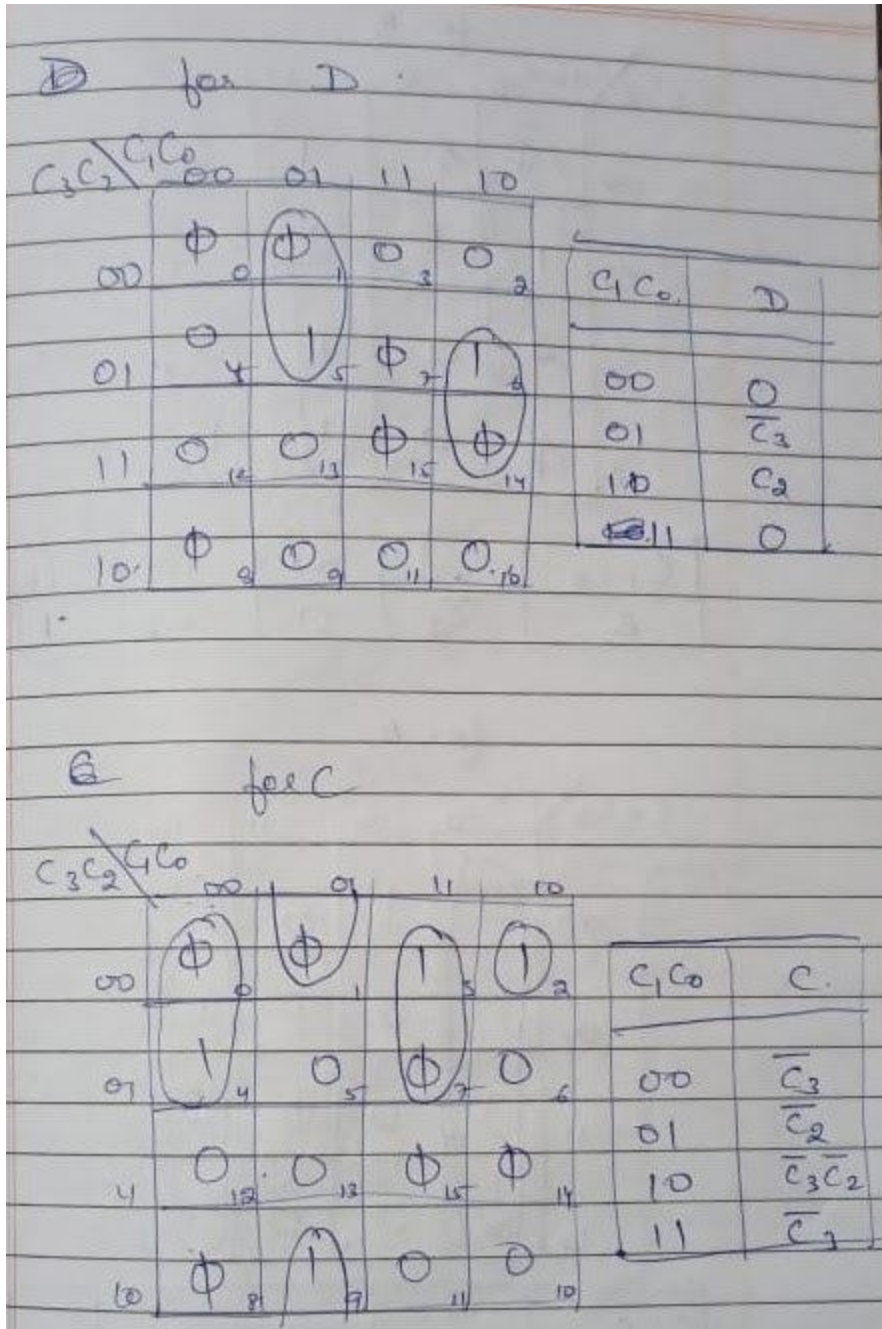 for D.
C3C2\C1C0 00 01 11 10
00 Φ 0 Φ 1 0 3 0 2
01 0 4 1 5 Φ 7 1 6
11 0 12 0 13 Φ 15 Φ 14
10. Φ 8 0 9 0 11 0 10
C1 C0. D
00 0
01 C̅3
10 C2
11 0
for C
C3C2\C1C0 00 01 11 10
00 Φ 0 Φ 1 1 3 1 2
01 1 4 0 5 Φ 7 0 6
11 0 12 0 13 Φ 15 Φ 14
10 Φ 8 1 9 0 11 0 10
C1C0 C.
00 C̅3
01 C̅2
10 C̅3C̅2
11 C̅3